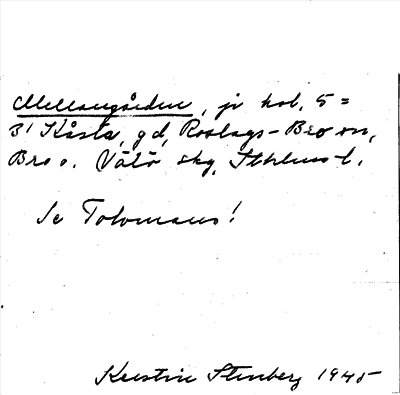 Mellangården, jr kol. 5 =
3¹ Kårsta, gd, Roslags-Bro sn,
Bro o. Vätö skg, Sthlms l.
Se Tolvmans!
Kerstin Stenberg 1945